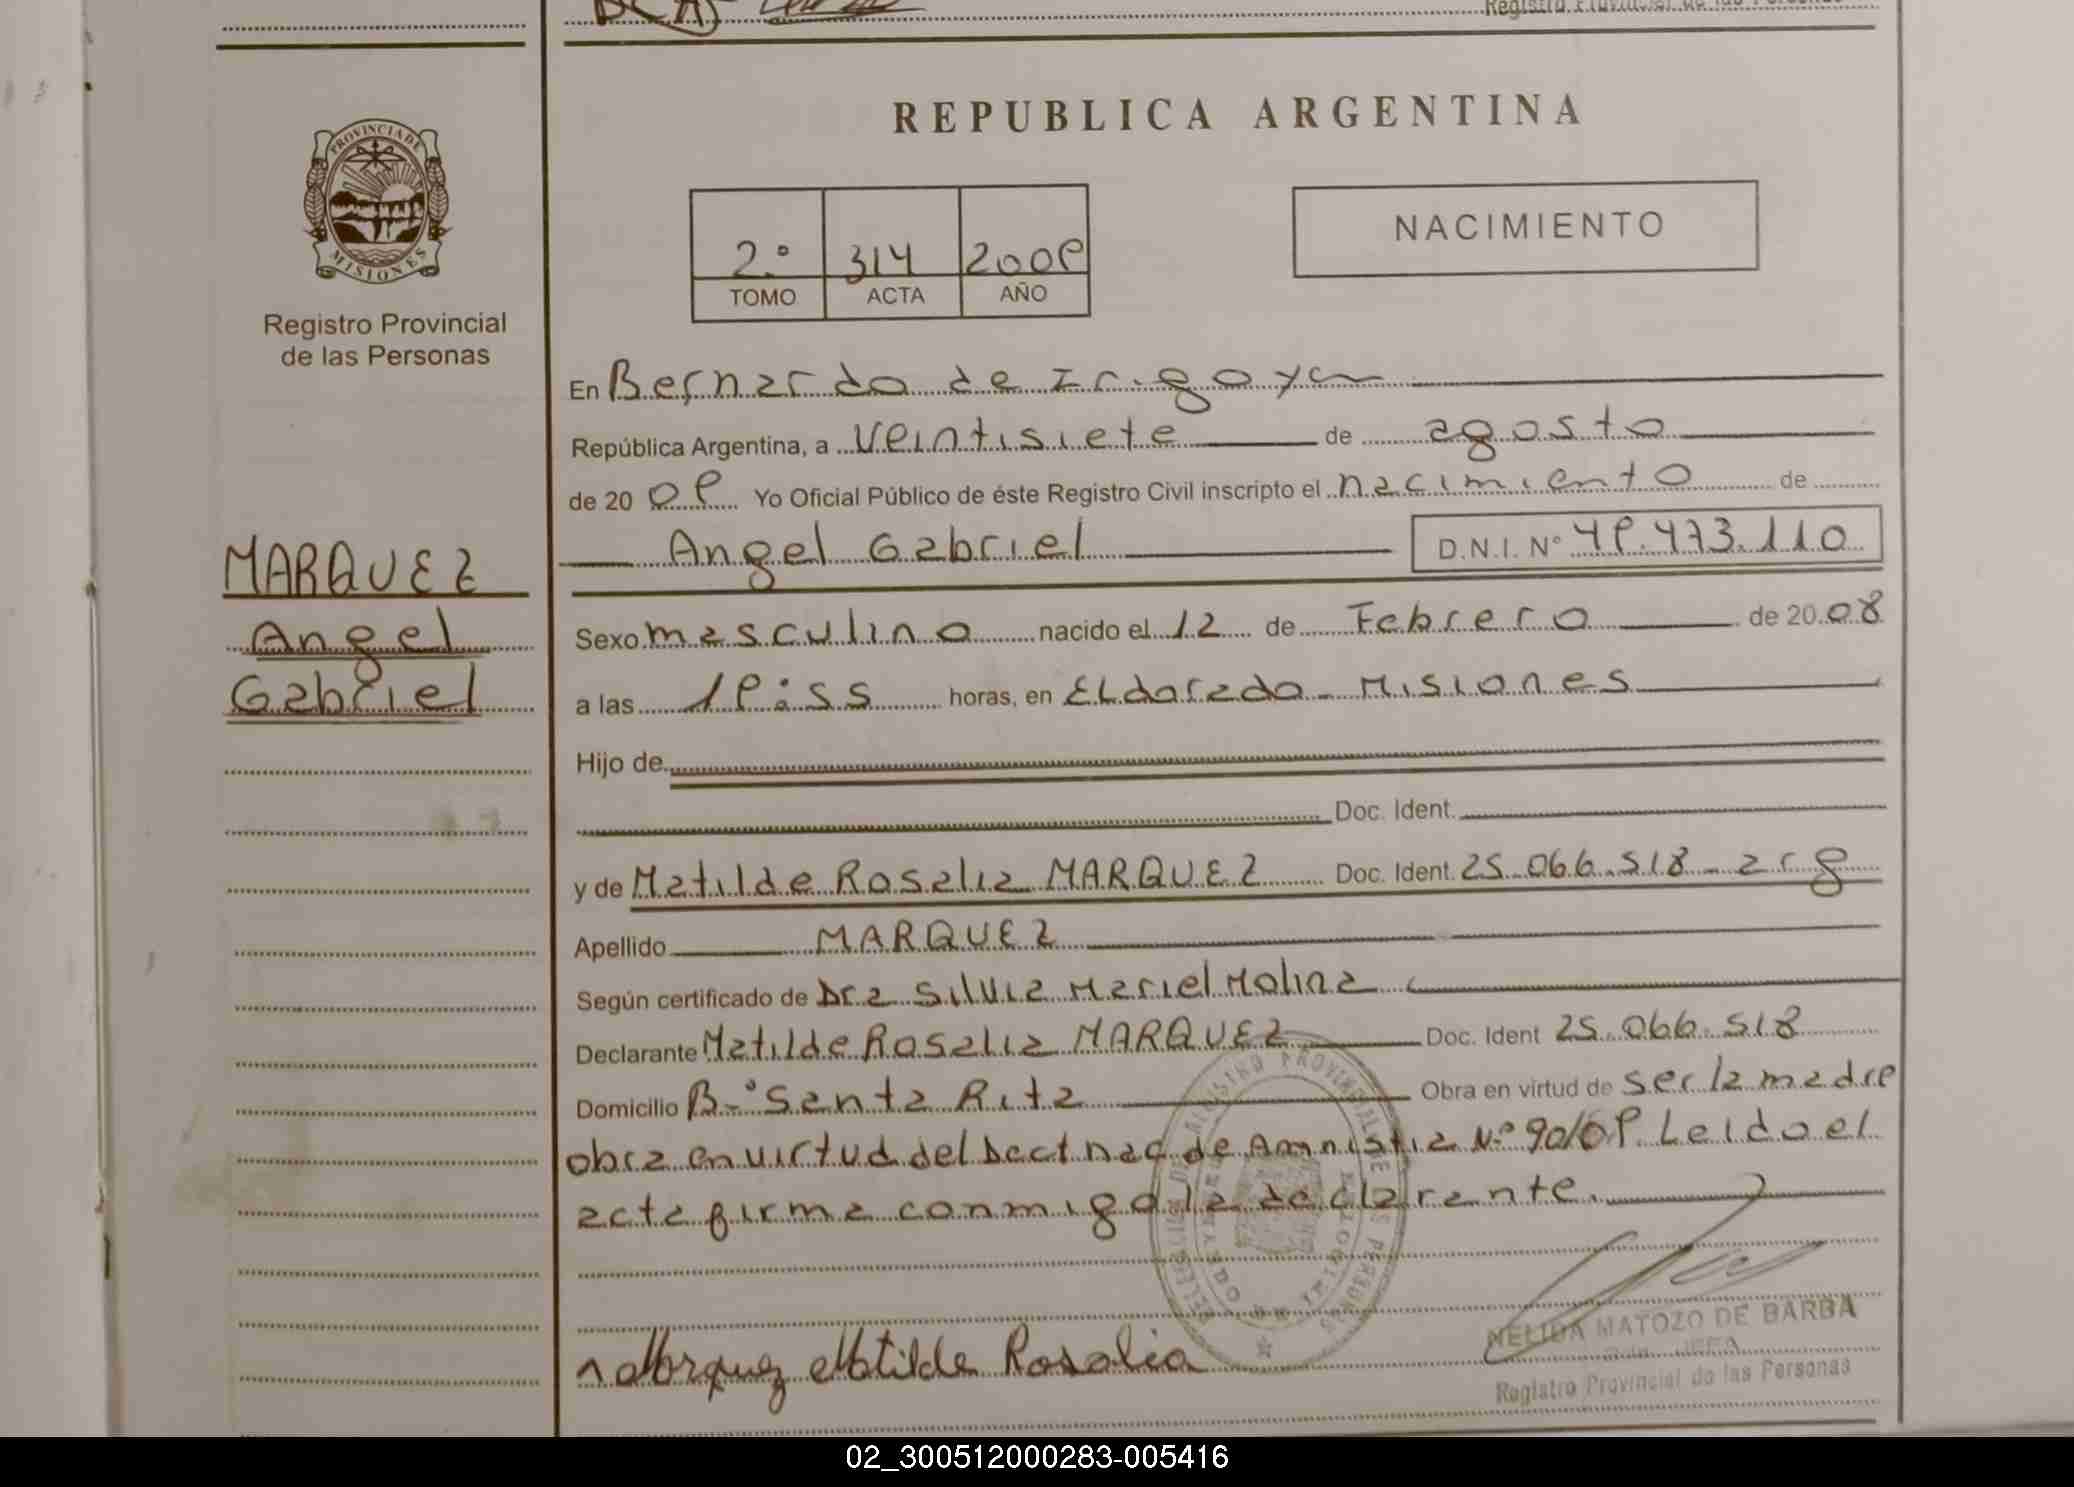 Registro Provincial de las Personas
REPUBLICA ARGENTINA
PROVINCIA DE
MISIONES
Registro Provincial
de las Personas
2.º 314 2009
TOMO ACTA AÑO
NACIMIENTO
En Bernardo de Irigoyen
República Argentina, a veintisiete de agosto
de 20 09 Yo Oficial Público de éste Registro Civil inscripto el nacimiento de
Angel Gabriel D.N.I. Nº 49.473.110
MARQUEZ
Angel
Gabriel
Sexo masculino nacido el 12 de Febrero de 20 08
a las 19:55 horas, en Eldorado - Misiones
Hijo de
Doc. Ident.
y de Matilde Rosalia MARQUEZ Doc. Ident. 25.066.518 - arg
Apellido MARQUEZ
Según certificado de Dra Silvia Mariel Molina
Declarante Matilde Rosalia MARQUEZ Doc. Ident 25.066.518
Domicilio B-º Santa Rita Obra en virtud de ser la madre
obra en virtud del Dect nac de Amnistia Nº 90/09. Leido el
acta firma conmigo la declarante.
Marquez Matilde Rosalia
NELIDA MATOZO DE BARBA
JEFA
Registro Provincial de las Personas
02_300512000283-005416